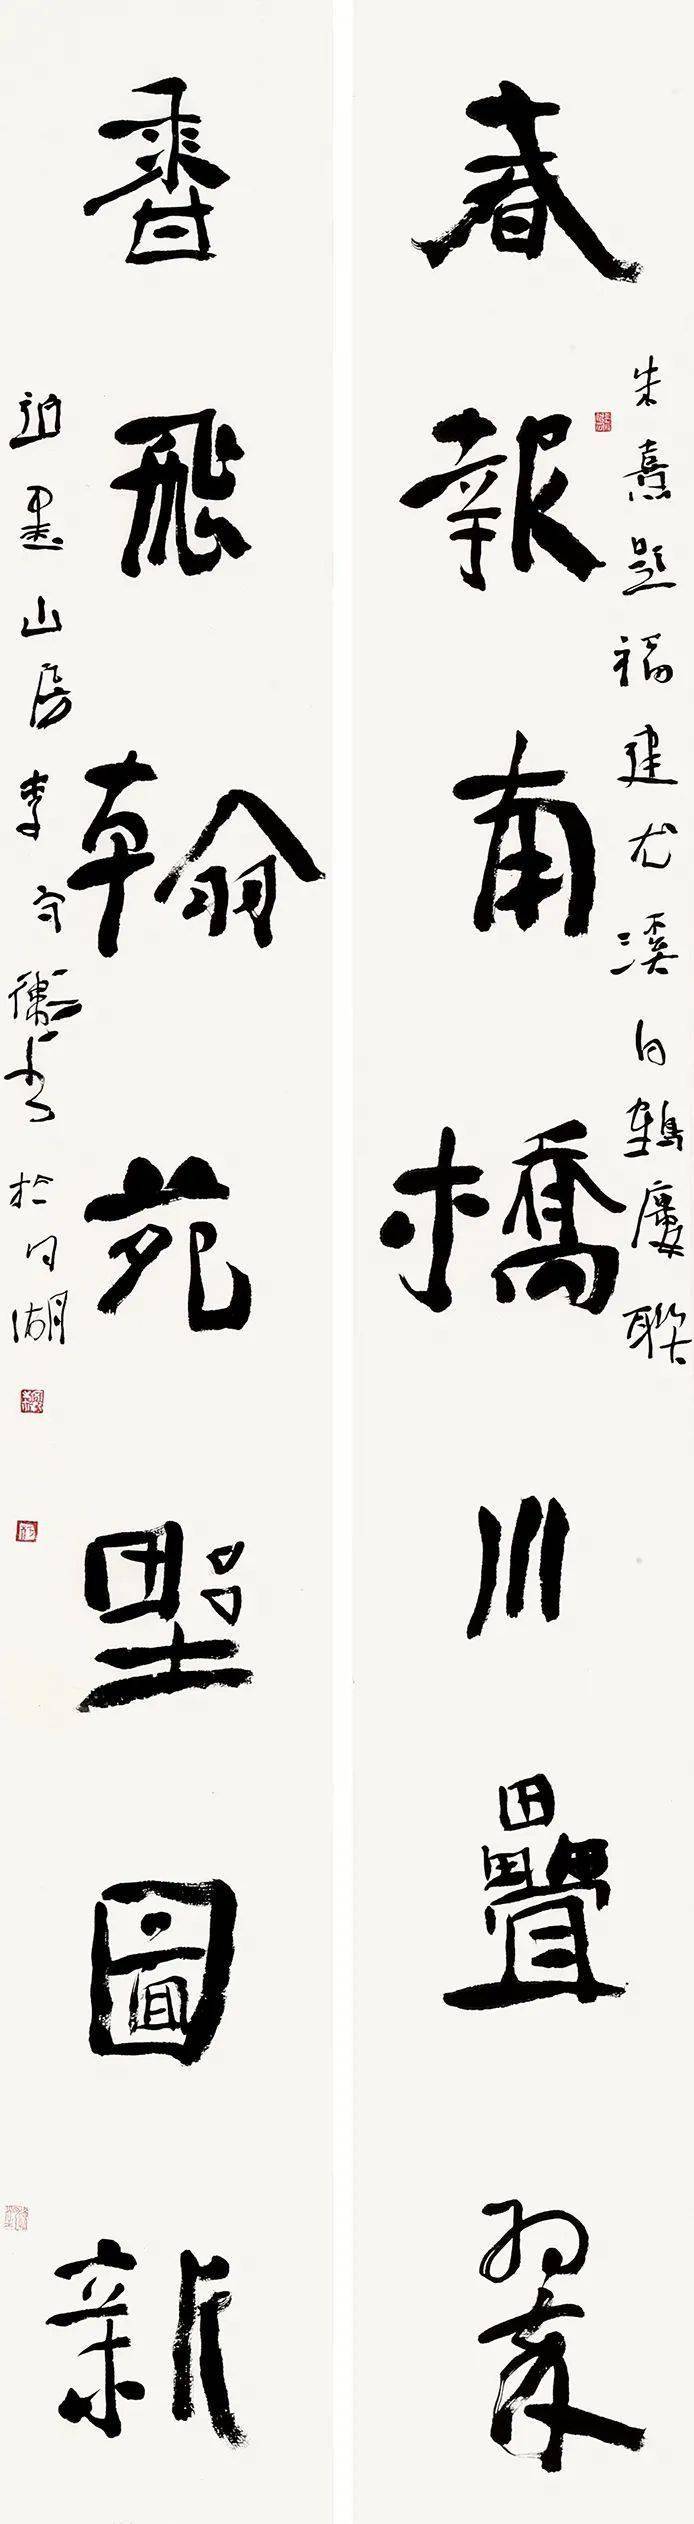 朱熹題福建尤溪白鶴廔聯
春報南橋川疊翠
香飛翰苑野圖新
墨山房李守書於湖